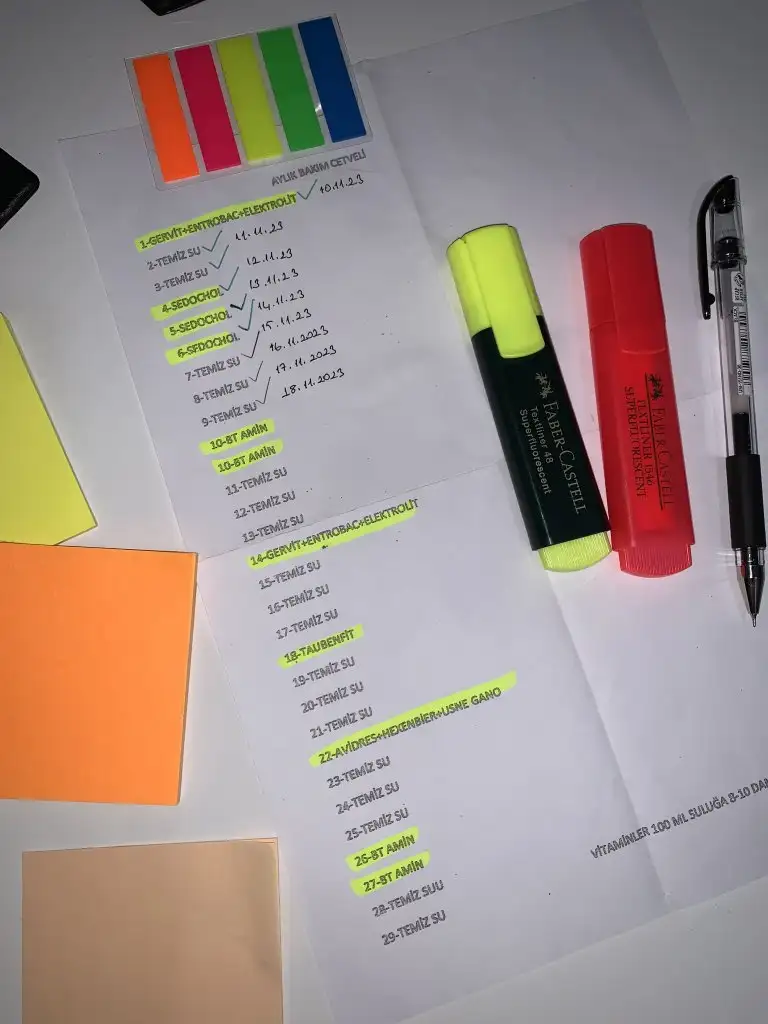 AYLIK BAKIM CETVELİ
1-GERVİT+ENTROBAC+ELEKTROLİT ✓ 10.11.23
2-TEMİZ SU ✓ 11.11.23
3-TEMİZ SU ✓ 12.11.23
4-SEDOCHOL ✓ 13.11.23
5-SEDOCHOL ✓ 14.11.23
6-SEDOCHOL ✓ 15.11.23
7-TEMİZ SU ✓ 16.11.2023
8-TEMİZ SU ✓ 17.11.2023
9-TEMİZ SU ✓ 18.11.2023
10-BT AMİN
10-BT AMİN
11-TEMİZ SU
12-TEMİZ SU
13-TEMİZ SU
14-GERVİT+ENTROBAC+ELEKTROLİT
15-TEMİZ SU
16-TEMİZ SU
17-TEMİZ SU
18-TAUBENFİT
19-TEMİZ SU
20-TEMİZ SU
21-TEMİZ SU
22-AVİDRES+HEXENBİER+USNE GANO
23-TEMİZ SU
24-TEMİZ SU
25-TEMİZ SU
26-BT AMİN
27-BT AMİN
28-TEMİZ SUU
29-TEMİZ SU
VİTAMİNLER 100 ML SULUĞA 8-10 DAM
FABER-CASTELL
Textliner 48
Superfluorescent
FABER-CASTELL
TEXTLINER 1546
SUPERFLUORESCENT